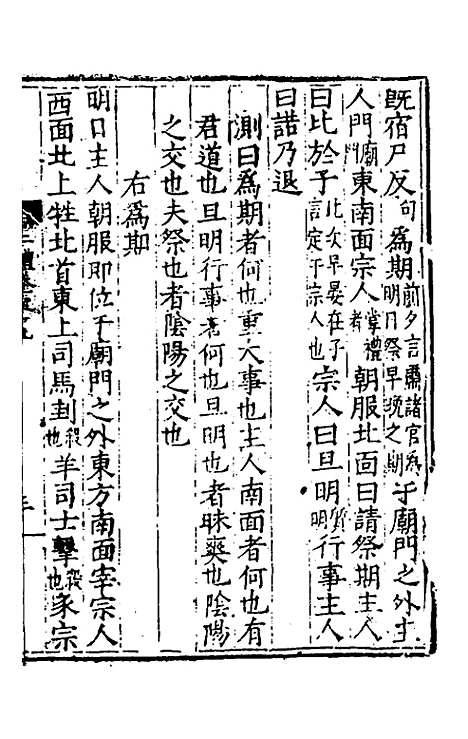 既宿尸反句爲期前夕言肅諸官爲明日祭早晚之期于廟門之外主
人門廟門東南面宗人掌禮者朝服北面曰請祭期主人
曰比於子比次早晏在子言定于宗人也宗人曰旦明質明行事主人
曰諾乃退
測曰爲期者何也重大事也主人南面者何也有
君道也旦明行事者何也旦明也者昧爽也陰陽
之交也夫祭也者陰陽之交也
右爲期
明日主人朝服即位于廟門之外東方南面宰宗人
西面北上牲北首東上司馬刲殺也羊司士擊殺也豕宗